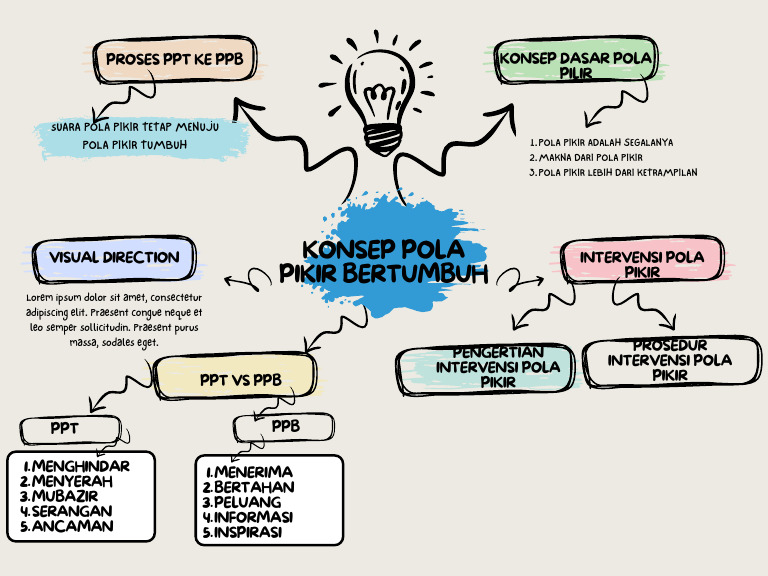 PROSES PPT KE PPB
SUARA POLA PIKIR TETAP MENUJU
POLA PIKIR TUMBUH
KONSEP DASAR POLA
PILIR
1. POLA PIKIR ADALAH SEGALANYA
2. MAKNA DARI POLA PIKIR
3. POLA PIKIR LEBIH DARI KETRAMPILAN
KONSEP POLA
PIKIR BERTUMBUH
VISUAL DIRECTION
Lorem ipsum dolor sit amet, consectetur
adipiscing elit. Praesent congue neque et
leo semper sollicitudin. Praesent purus
massa, sodales eget.
INTERVENSI POLA
PIKIR
PENGERTIAN
INTERVENSI POLA
PIKIR
PROSEDUR
INTERVENSI POLA
PIKIR
PPT VS PPB
PPT
1. MENGHINDAR
2. MENYERAH
3. MUBAZIR
4. SERANGAN
5. ANCAMAN
PPB
1. MENERIMA
2. BERTAHAN
3. PELUANG
4. INFORMASI
5. INSPIRASI